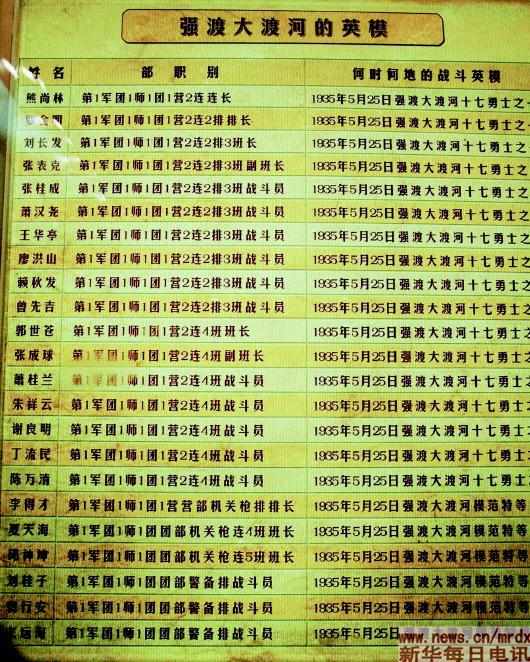 强渡大渡河的英模
姓 名 部 职 别 何时何地的战斗英模
熊尚林 第1军团1师1团1营2连连长 1935年5月25日强渡大渡河十七勇士之
第1军团1师1团1营2连2排排长 1935年5月25日强渡大渡河十七勇士之
刘长发 第1军团1师1团1营2连2排3班长 1935年5月25日强渡大渡河十七勇士之
张表克 第1军团1师1团1营2连2排3班副班长 1935年5月25日强渡大渡河十七勇士之
张桂成 第1军团1师1团1营2连2排3班战斗员 1935年5月25日强渡大渡河十七勇士之
萧汉尧 第1军团1师1团1营2连2排3班战斗员 1935年5月25日强渡大渡河十七勇士之
王华亭 第1军团1师1团1营2连2排3班战斗员 1935年5月25日强渡大渡河十七勇士之
廖洪山 第1军团1师1团1营2连2排3班战斗员 1935年5月25日强渡大渡河十七勇士之
赖秋发 第1军团1师1团1营2连2排3班战斗员 1935年5月25日强渡大渡河十七勇士之
曾先吉 第1军团1师1团1营2连2排3班战斗员 1935年5月25日强渡大渡河十七勇士之
郭世苍 第1军团1师1团1营2连4班班长 1935年5月25日强渡大渡河十七勇士之
张成球 第1军团1师1团1营2连4班副班长 1935年5月25日强渡大渡河十七勇士之
萧桂兰 第1军团1师1团1营2连4班战斗员 1935年5月25日强渡大渡河十七勇士之
朱祥云 第1军团1师1团1营2连4班战斗员 1935年5月25日强渡大渡河十七勇士之
谢良明 第1军团1师1团1营2连4班战斗员 1935年5月25日强渡大渡河十七勇士之
丁流民 第1军团1师1团1营2连4班战斗员 1935年5月25日强渡大渡河十七勇士之
陈万清 第1军团1师1团1营2连4班战斗员 1935年5月25日强渡大渡河十七勇士之
李得才 第1军团1师1团1营营部机关枪排排长 1935年5月25日强渡大渡河模范特等
夏天海 第1军团1师1团团部机关枪连4班班长 1935年5月25日强渡大渡河模范特等
神坤 第1军团1师1团团部机关枪连5班班长 1935年5月25日强渡大渡河模范特等
刘桂子 第1军团1师1团团部警备排战斗员 1935年5月25日强渡大渡河模范特等
行安 第1军团1师1团团部警备排战斗员 1935年5月25日强渡大渡河模范特等
远海 第1军团1师1团团部警备排战斗员 1935年5月25日
www.news.cn/mrdx
新华每日电讯